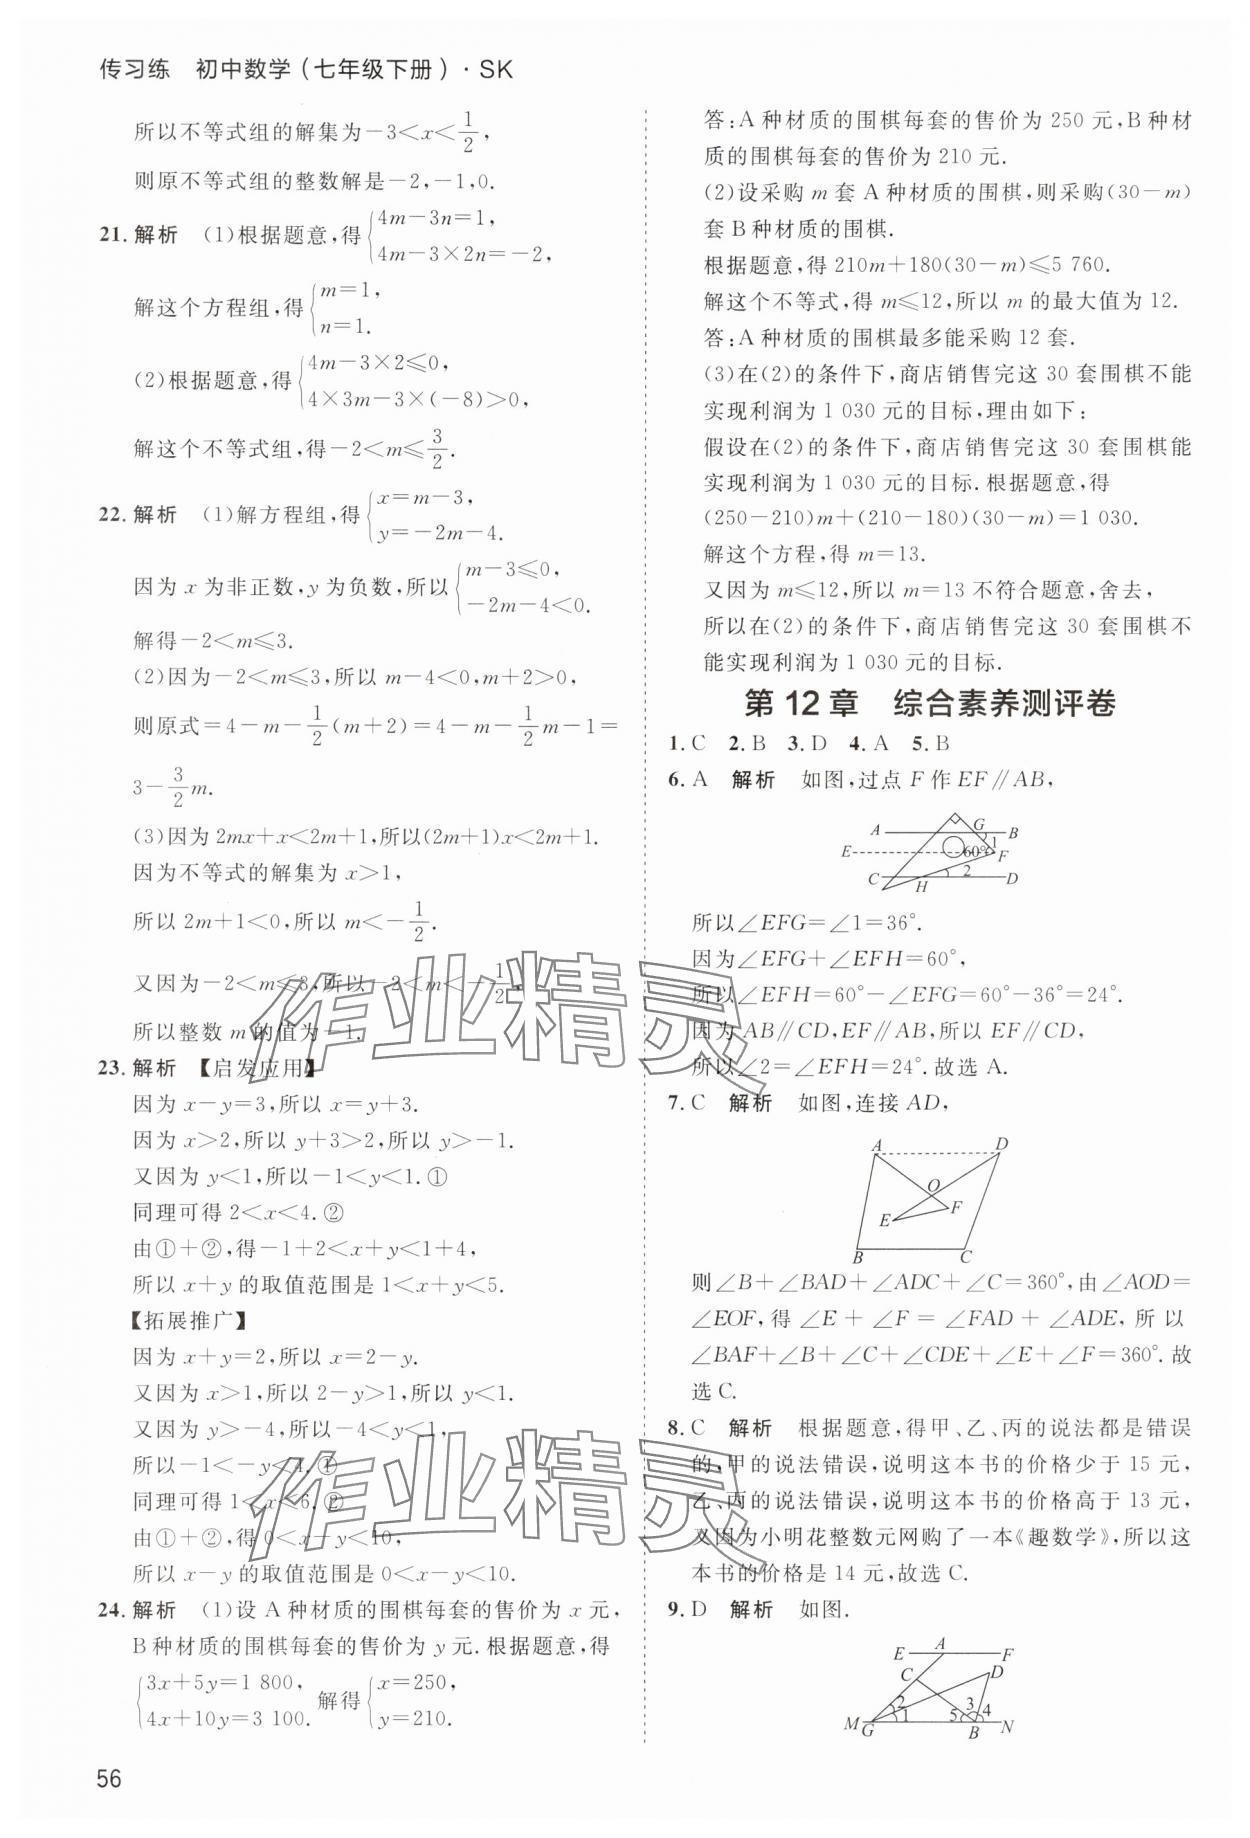 传习练 初中数学(七年级下册)·SK
所以不等式组的解集为－3＜x＜1/2,
则原不等式组的整数解是－2,－1,0.
21. 解析 (1)根据题意,得{4m－3n＝1, 4m－3×2n＝－2,
解这个方程组,得{m＝1, n＝1.
(2)根据题意,得{4m－3×2≤0, 4×3m－3×(－8)＞0,
解这个不等式组,得－2＜m≤3/2.
22. 解析 (1)解方程组,得{x＝m－3, y＝－2m－4.
因为 x 为非正数,y 为负数,所以{m－3≤0, －2m－4＜0.
解得－2＜m≤3.
(2)因为－2＜m≤3,所以 m－4＜0,m＋2＞0,
则原式＝4－m－1/2(m＋2)＝4－m－1/2m－1＝
3－3/2m.
(3)因为 2mx＋x＜2m＋1,所以(2m＋1)x＜2m＋1.
因为不等式的解集为 x＞1,
所以 2m＋1＜0,所以 m＜－1/2.
又因为－2＜m≤3,所以－2＜m＜－1/2,
所以整数 m 的值为－1.
23. 解析 【启发应用】
因为 x－y＝3,所以 x＝y＋3.
因为 x＞2,所以 y＋3＞2,所以 y＞－1.
又因为 y＜1,所以－1＜y＜1.①
同理可得 2＜x＜4.②
由①＋②,得－1＋2＜x＋y＜1＋4,
所以 x＋y 的取值范围是 1＜x＋y＜5.
【拓展推广】
因为 x＋y＝2,所以 x＝2－y.
又因为 x＞1,所以 2－y＞1,所以 y＜1.
又因为 y＞－4,所以－4＜y＜1,
所以－1＜－y＜4.①
同理可得 1＜x＜6.②
由①＋②,得 0＜x－y＜10,
所以 x－y 的取值范围是 0＜x－y＜10.
24. 解析 (1)设 A 种材质的围棋每套的售价为 x 元,
B 种材质的围棋每套的售价为 y 元.根据题意,得
{3x＋5y＝1 800, 4x＋10y＝3 100. 解得{x＝250, y＝210.
56
答:A 种材质的围棋每套的售价为 250 元,B 种材
质的围棋每套的售价为 210 元.
(2)设采购 m 套 A 种材质的围棋,则采购(30－m)
套 B 种材质的围棋.
根据题意,得 210m＋180(30－m)≤5 760.
解这个不等式,得 m≤12,所以 m 的最大值为 12.
答:A 种材质的围棋最多能采购 12 套.
(3)在(2)的条件下,商店销售完这 30 套围棋不能
实现利润为 1 030 元的目标,理由如下:
假设在(2)的条件下,商店销售完这 30 套围棋能
实现利润为 1 030 元的目标.根据题意,得
(250－210)m＋(210－180)(30－m)＝1 030.
解这个方程,得 m＝13.
又因为 m≤12,所以 m＝13 不符合题意,舍去,
所以在(2)的条件下,商店销售完这 30 套围棋不
能实现利润为 1 030 元的目标.
第 12 章 综合素养测评卷
1. C 2. B 3. D 4. A 5. B
6. A 解析 如图,过点 F 作 EF∥AB,
A G B
E 60° 1 F
C H 2 D
所以∠EFG＝∠1＝36°.
因为∠EFG＋∠EFH＝60°,
所以∠EFH＝60°－∠EFG＝60°－36°＝24°.
因为 AB∥CD,EF∥AB,所以 EF∥CD,
所以∠2＝∠EFH＝24°.故选 A.
7. C 解析 如图,连接 AD,
A D
O
E F
B C
则∠B＋∠BAD＋∠ADC＋∠C＝360°,由∠AOD＝
∠EOF,得 ∠E ＋ ∠F ＝ ∠FAD ＋ ∠ADE,所以
∠BAF＋∠B＋∠C＋∠CDE＋∠E＋∠F＝360°.故
选 C.
8. C 解析 根据题意,得甲、乙、丙的说法都是错误
的,甲的说法错误,说明这本书的价格少于 15 元,
乙、丙的说法错误,说明这本书的价格高于 13 元,
又因为小明花整数元网购了一本《趣数学》,所以这
本书的价格是 14 元,故选 C.
9. D 解析 如图.
E A F
C D
M G 2 1 5 3 4 B N
作业精灵
作业精灵